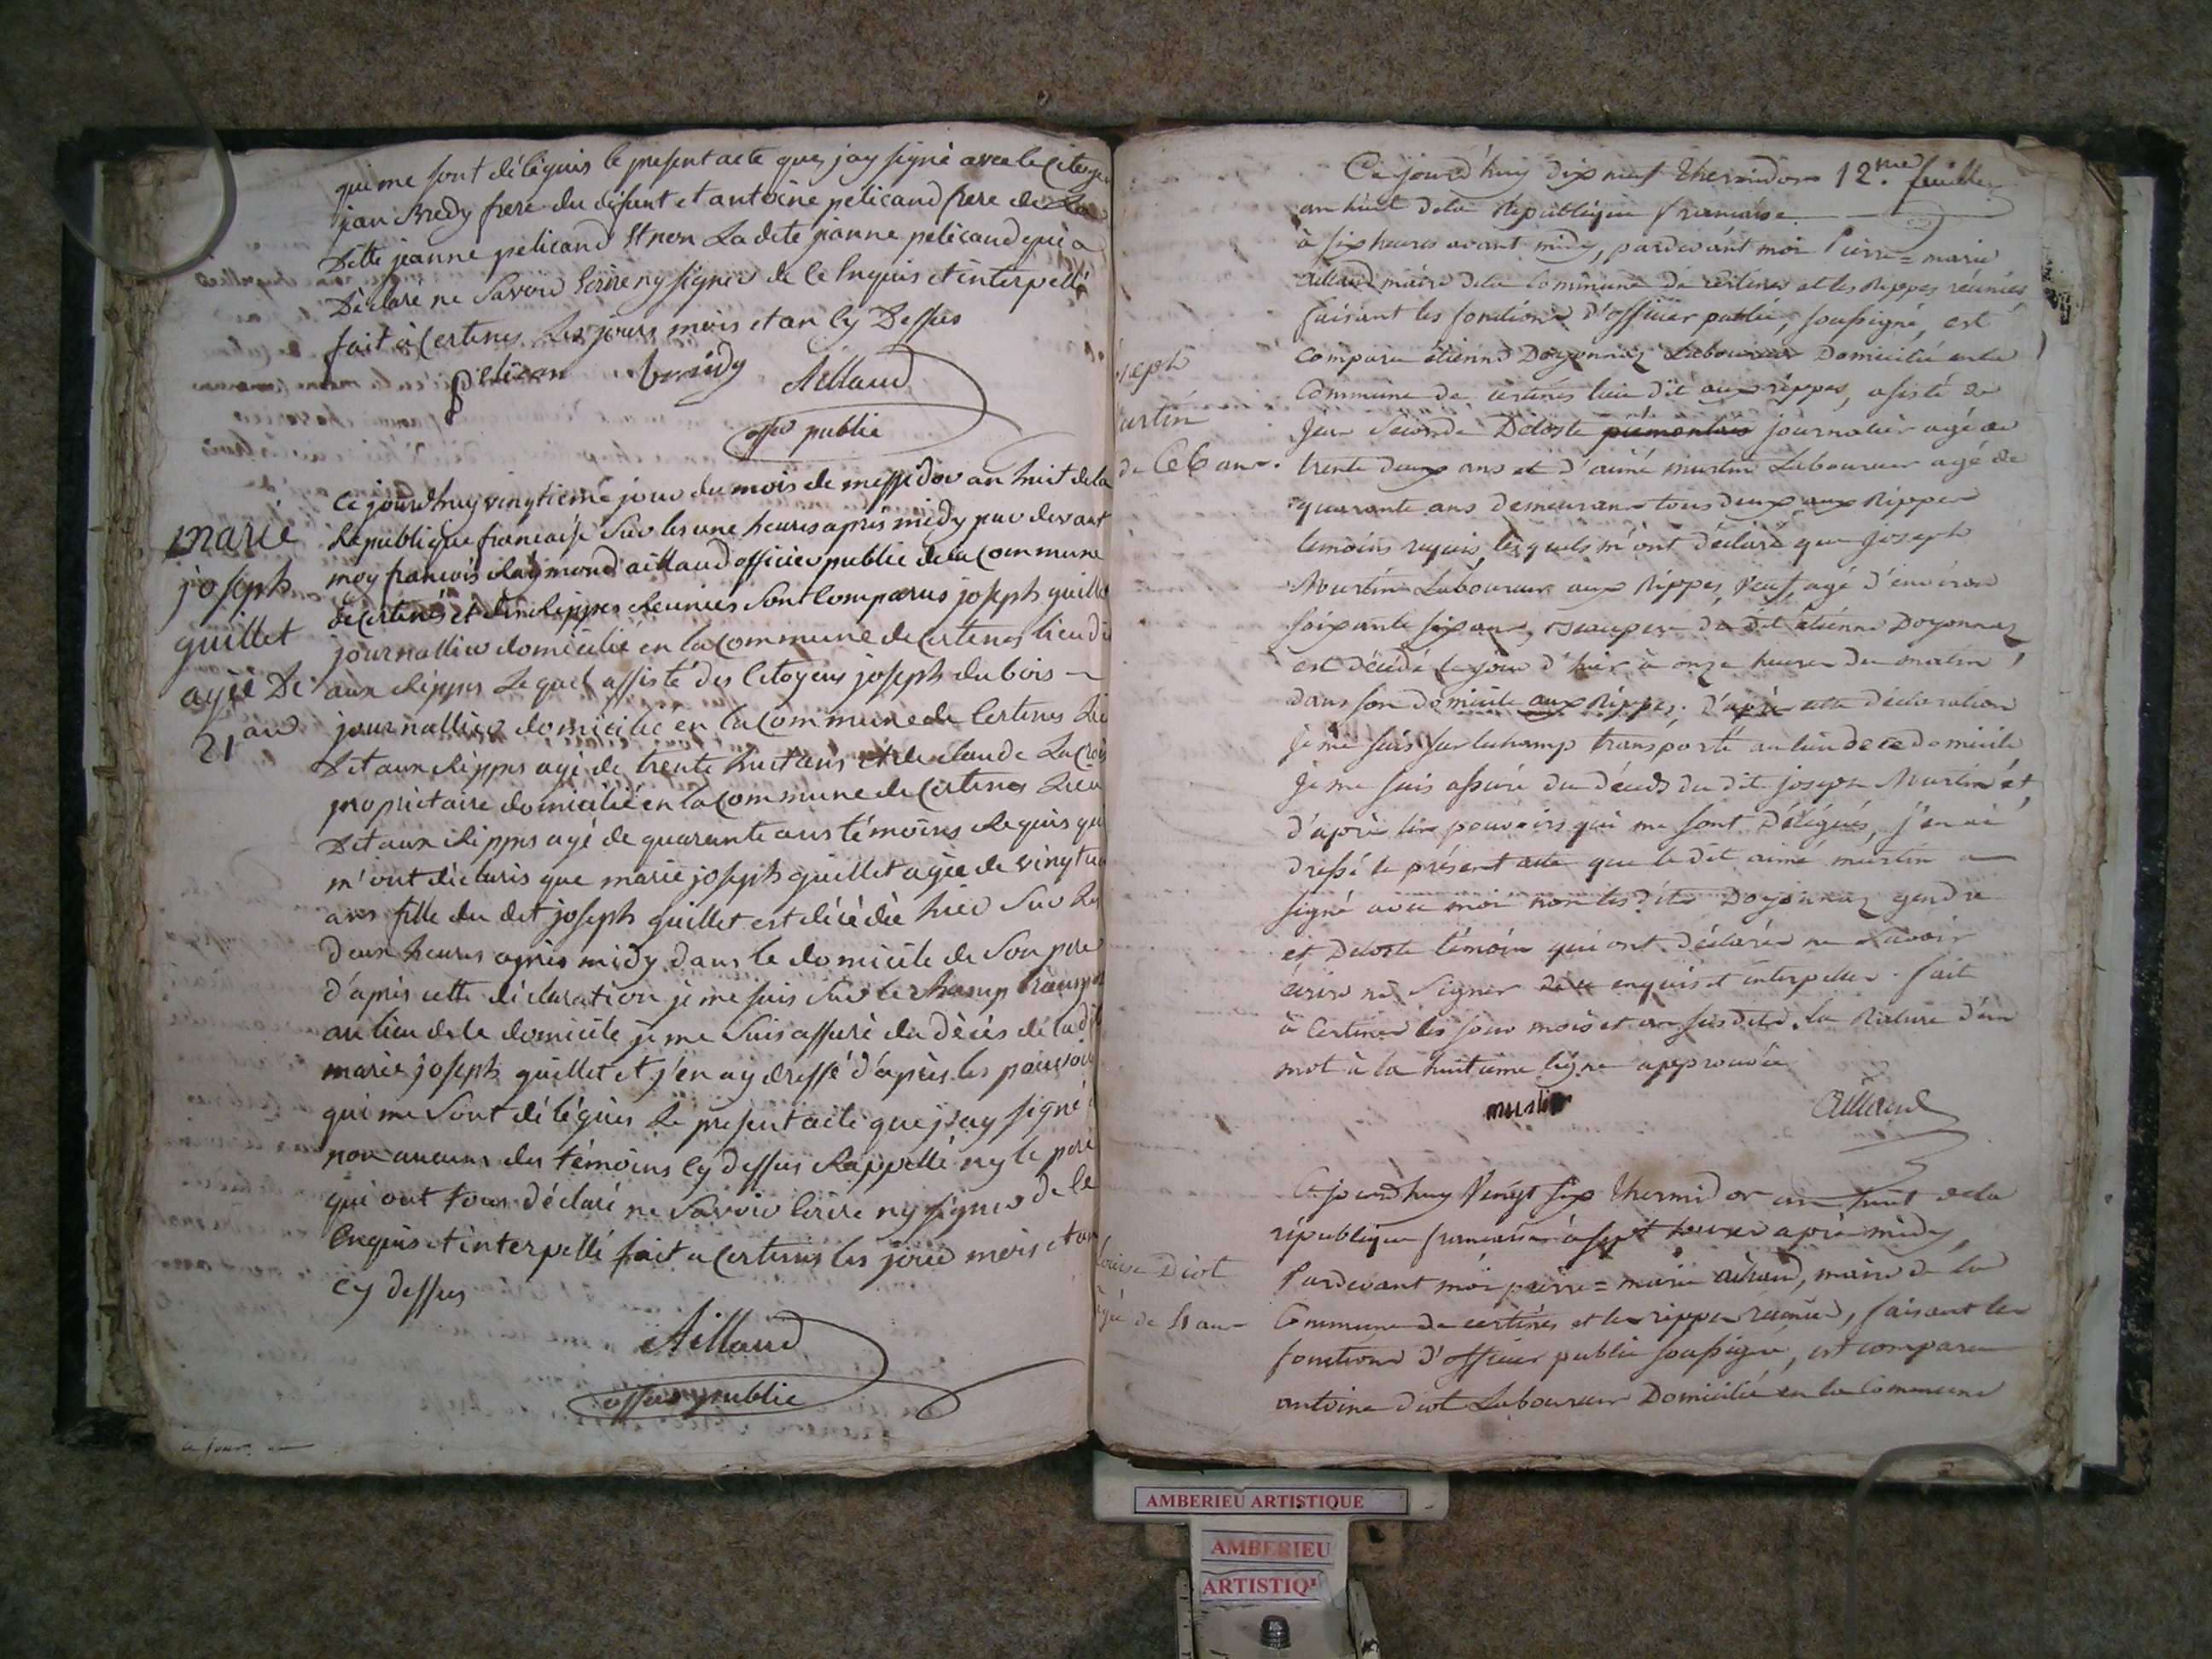 qui me sont délégués le present acte que jay signé avec le Citoyen
jean Bredy frere du défunt et antoine pélicand frere de La
Ditte jeanne pelicand Et non Ladite jeanne pelicand qui a
Déclaré ne Savoir Ecrire ny signer de Ce Enquis et interpellé
fait à Certines Les jours mois et an Cy Dessus
Pelican
Aillaud
offer public
marie
joseph
guillet
agée De
21 an
Ce jourdhuy vingtieme jour du mois de messidor an huit de la
Republique francaise Sur les une heures après midy par devant
moy francois Raymond aillaud officier public de la commune
de Certines et des Rippes Reunies Sont Comparus joseph guillet
journallier domicilié en la Commune de Certines lieu di
aux Rippes Lequel assisté des Citoyens joseph dubois
journallier domicilié en la Commune de Certines Lieu
Dit aux Rippes agé de trente huit ans et de claude La Croi
propriétaire domicilié en la Commune de Certines Lieu
Dit aux Rippes agé de quarante ans témoins Requis qui
m'ont déclarés que marie joseph guillet agée de vingt un
ans fille du dit joseph guillet est décédée hier Sur Les
deux heures après midy dans le domicile de Son pere
d'après cette déclaration je me suis Sur le Champ transpor
au lieu de le domicile je me Suis assuré du décés de la di
marie joseph guillet et j'en ay dressé d'après les pouvoirs
qui me Sont délégués Le present acte que j'ay signé
non aucuns des témoins Cy dessus Rappellé ny le pere
qui ont tous déclaré ne Savoir Ecrire ny signer de Ce
Enquis et interpellé fait a Certines les jour mois et an
Cy dessus
Aillaud
offer public
12.me feuillet
Ce jourd'huy dix neuf thermidor
an huit de la République francaise
à six heures avant midy, pardevant moi Pierre=marie
Aillaud maire de la Commune de Certines et les Rippes réunies
faisant les fonctions d'officier public, soussigné, est
comparu étienne Doyonnaz Laboureur Domicilié en la
Commune de certines lieu dit aux rippes, assisté de
jean Seconde Deloste piemontois journalier agé de
trente deux ans et d'aimé martin Laboureur agé de
quarante ans demeurans tous deux aux Rippes
témoins requis, lesquels m'ont déclaré que joseph
Martin Laboureur aux Rippes, Veuf, agé d'environ
soixante six ans, beaupere du dit étienne Doyonnaz
est décédé le jour d'hier à onze heures du matin,
dans son domicile aux Rippes; d'après cette déclaration
je me suis sur le champ transporté au lieu de ce domicile
je me suis assuré du décès du dit joseph Martin et
d'après les pouvoirs qui me sont délégués, j'en ai
dressé le présent acte que le dit aimé martin a
signé avec moi non les dits Doyonnaz gendre
et Deloste témoin qui ont déclarés ne savoir
écrire ni Signer de ce enquis et interpellés. fait
à Certines les jour mois et an susdits. la Rature d'un
mot à la huitieme ligne approuvée
martin
Aillaud
seph
artin
de 66 ans.
Ce jourdhuy Vingt six thermidor an huit de la
république francaise à sept heures après midy,
Pardevant moi pierre=marie aillaud, maire de la
Commune de certines et les rippes réunies, faisant les
fonctions d'officier public soussigné, est comparu
antoine Diot Laboureur Domicilié en la Commune
Louise Diot
AMBERIEU ARTISTIQUE
AMBERIEU
ARTISTIQU